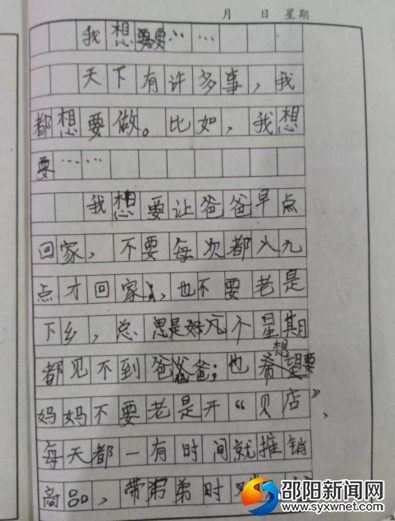 月 日 星期
我想要要……
天下有许多事，我
都想要做。比如，我想
要……
我想要让爸爸早点
回家，不要每次都八九
点才回家，也不要老是
下乡，总是好几个星期
都见不到爸爸爸；也希望
想 要
妈妈不要老是开“贝店”，
每天都一有时间就推销
商品，带弟弟时
邵阳新闻网
www.syxwnet.com